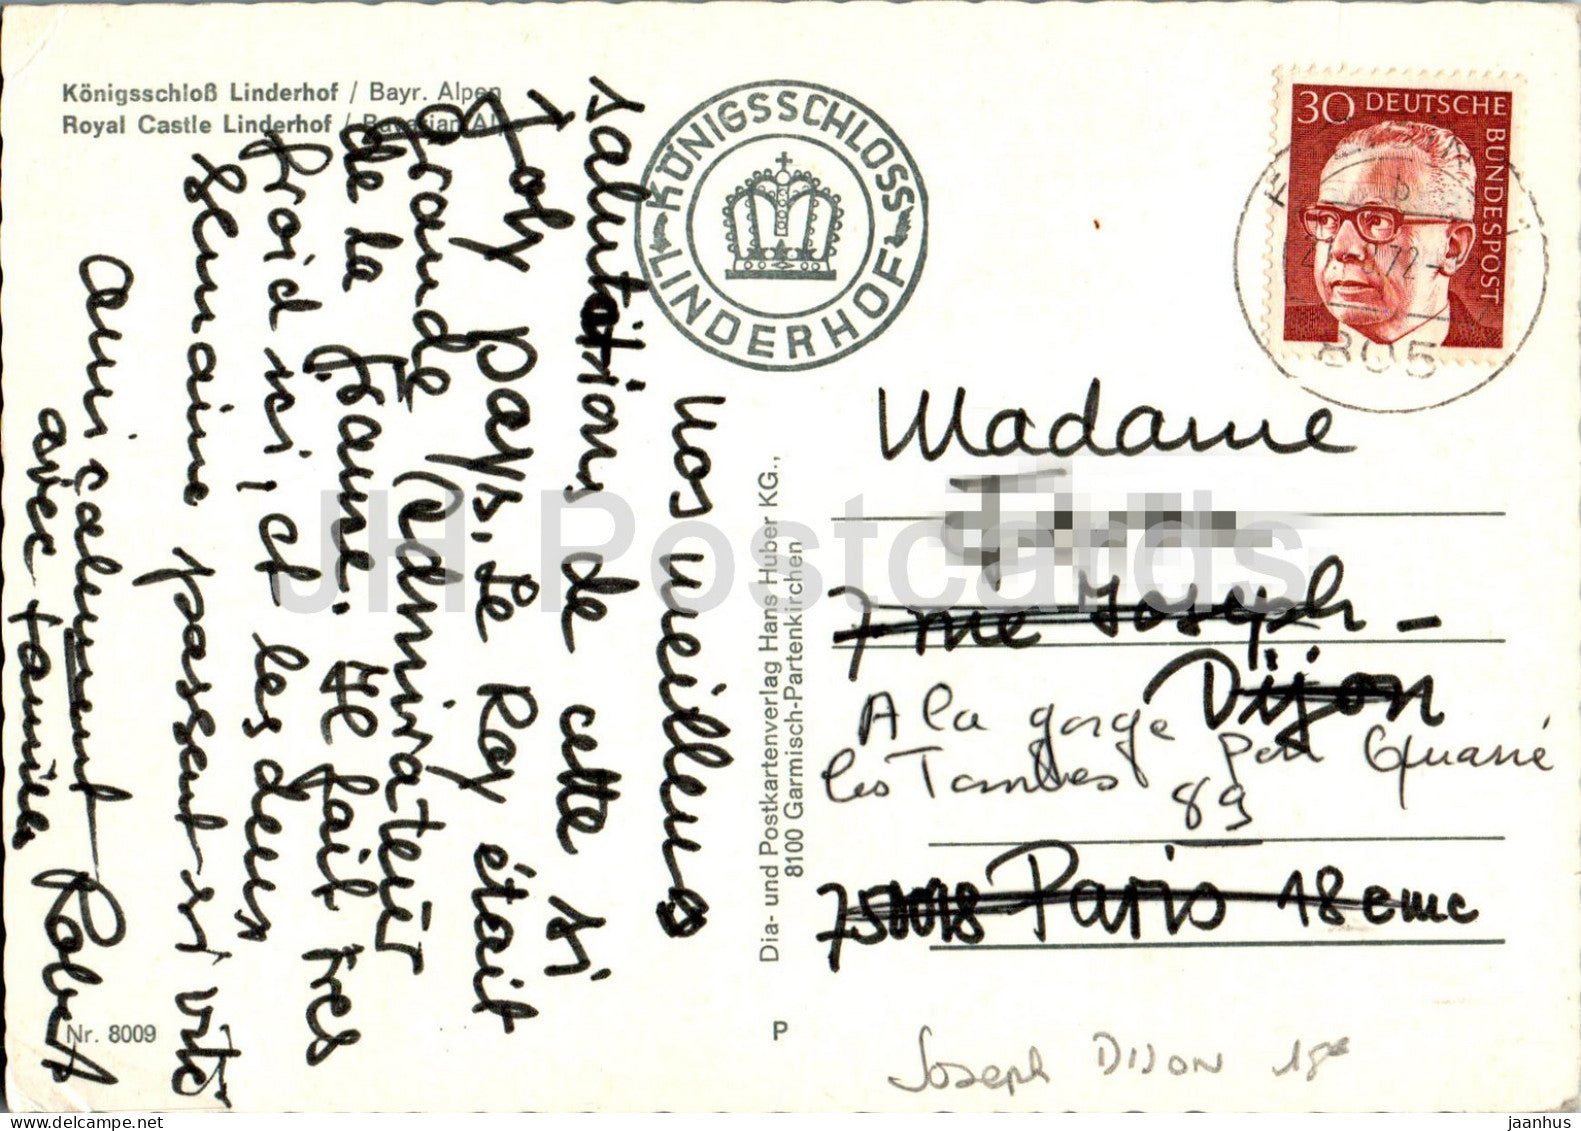 Königsschloß Linderhof / Bayr. Alpen
Royal Castle Linderhof / Bavarian Alps
KÖNIGSSCHLOSS
LINDERHOF
30 DEUTSCHE
BUNDESPOST
b
72
805
Nos meilleures
salutations de cette si
Joly pays. Le Roy était
grande admirateur
de la France. Il fait tres
froid ici, et les deux
semaine passent si vite
amicalement Robert
avec famille
Dia- und Postkartenverlag Hans Huber KG.,
8100 Garmisch-Partenkirchen
Madame
7 rue Joseph-
Dijon
A la gorge par Quarré
les Tombes 89
75018 Paris 18eme
Nr. 8009
P
Joseph DIJON 18e
JH Postcards
jaanhus